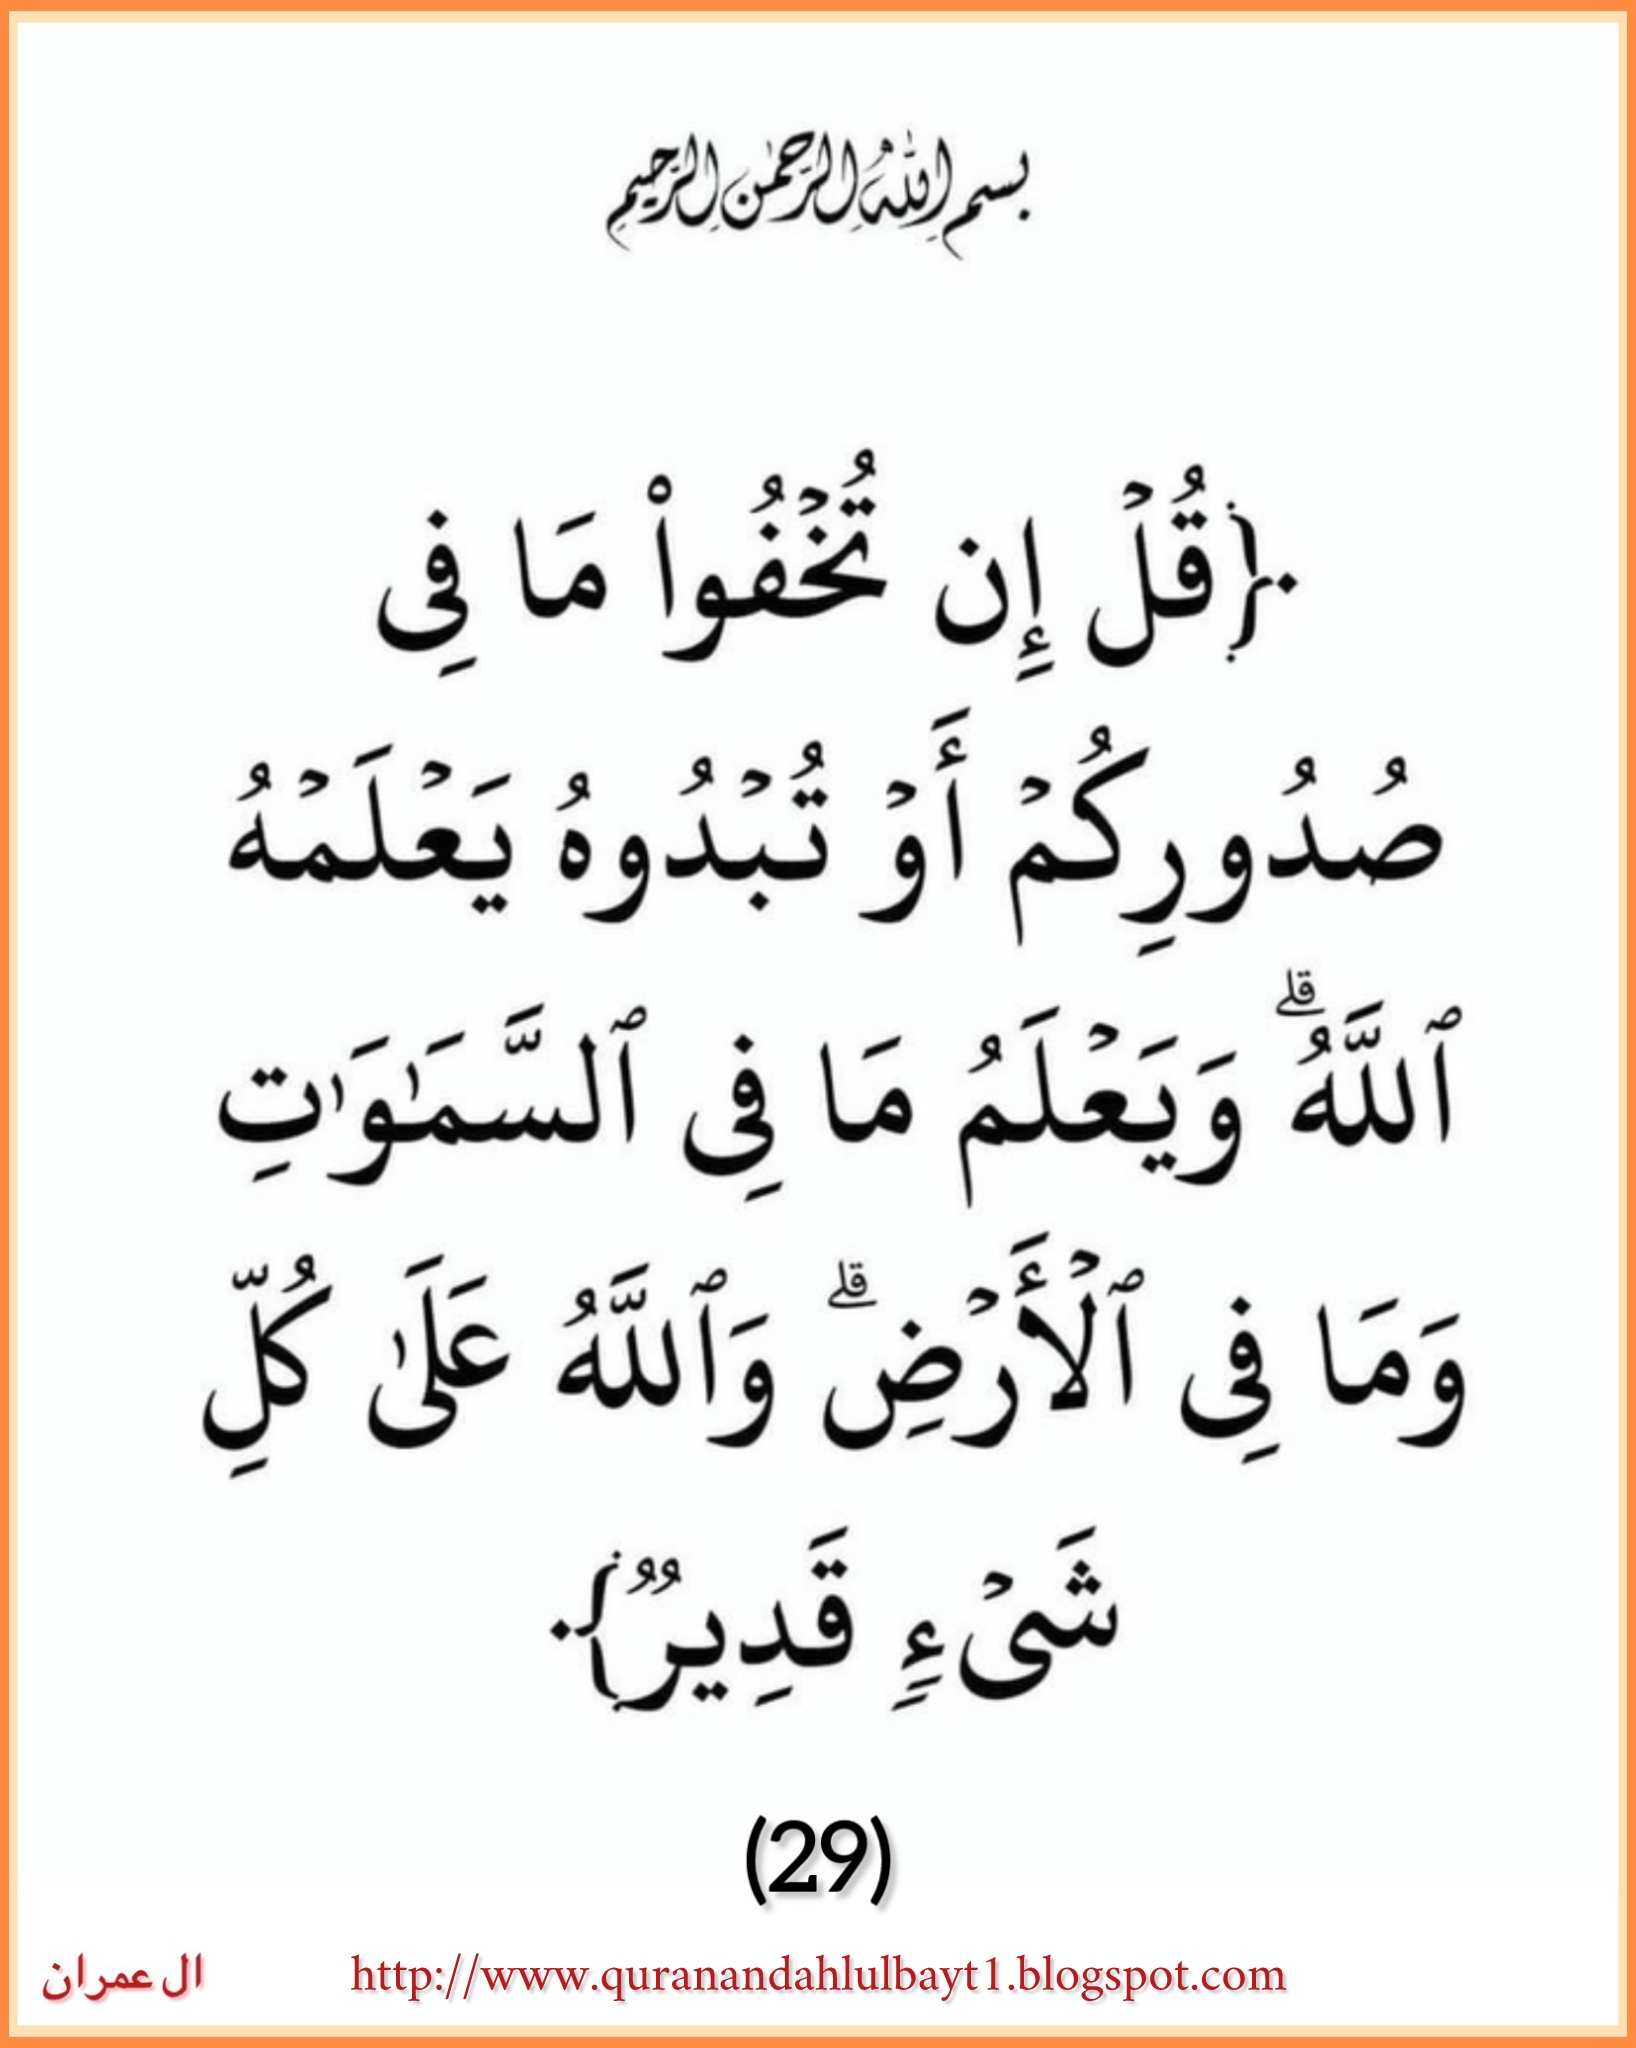 بسم اللهِ الرَّحمٰنِ الرَّحيمِ
﴿قُلۡ إِن تُخۡفُواْ مَا فِی
صُدُورِكُمۡ أَوۡ تُبۡدُوهُ یَعۡلَمۡهُ
ٱللَّهُۗ وَیَعۡلَمُ مَا فِی ٱلسَّمَـٰوَ ٰتِ
وَمَا فِی ٱلۡأَرۡضِۗ وَٱللَّهُ عَلَىٰ كُلِّ
شَیۡءࣲ قَدِیرࣱ﴾
(29)
ال عمران http://www.quranandahlulbayt1.blogspot.com